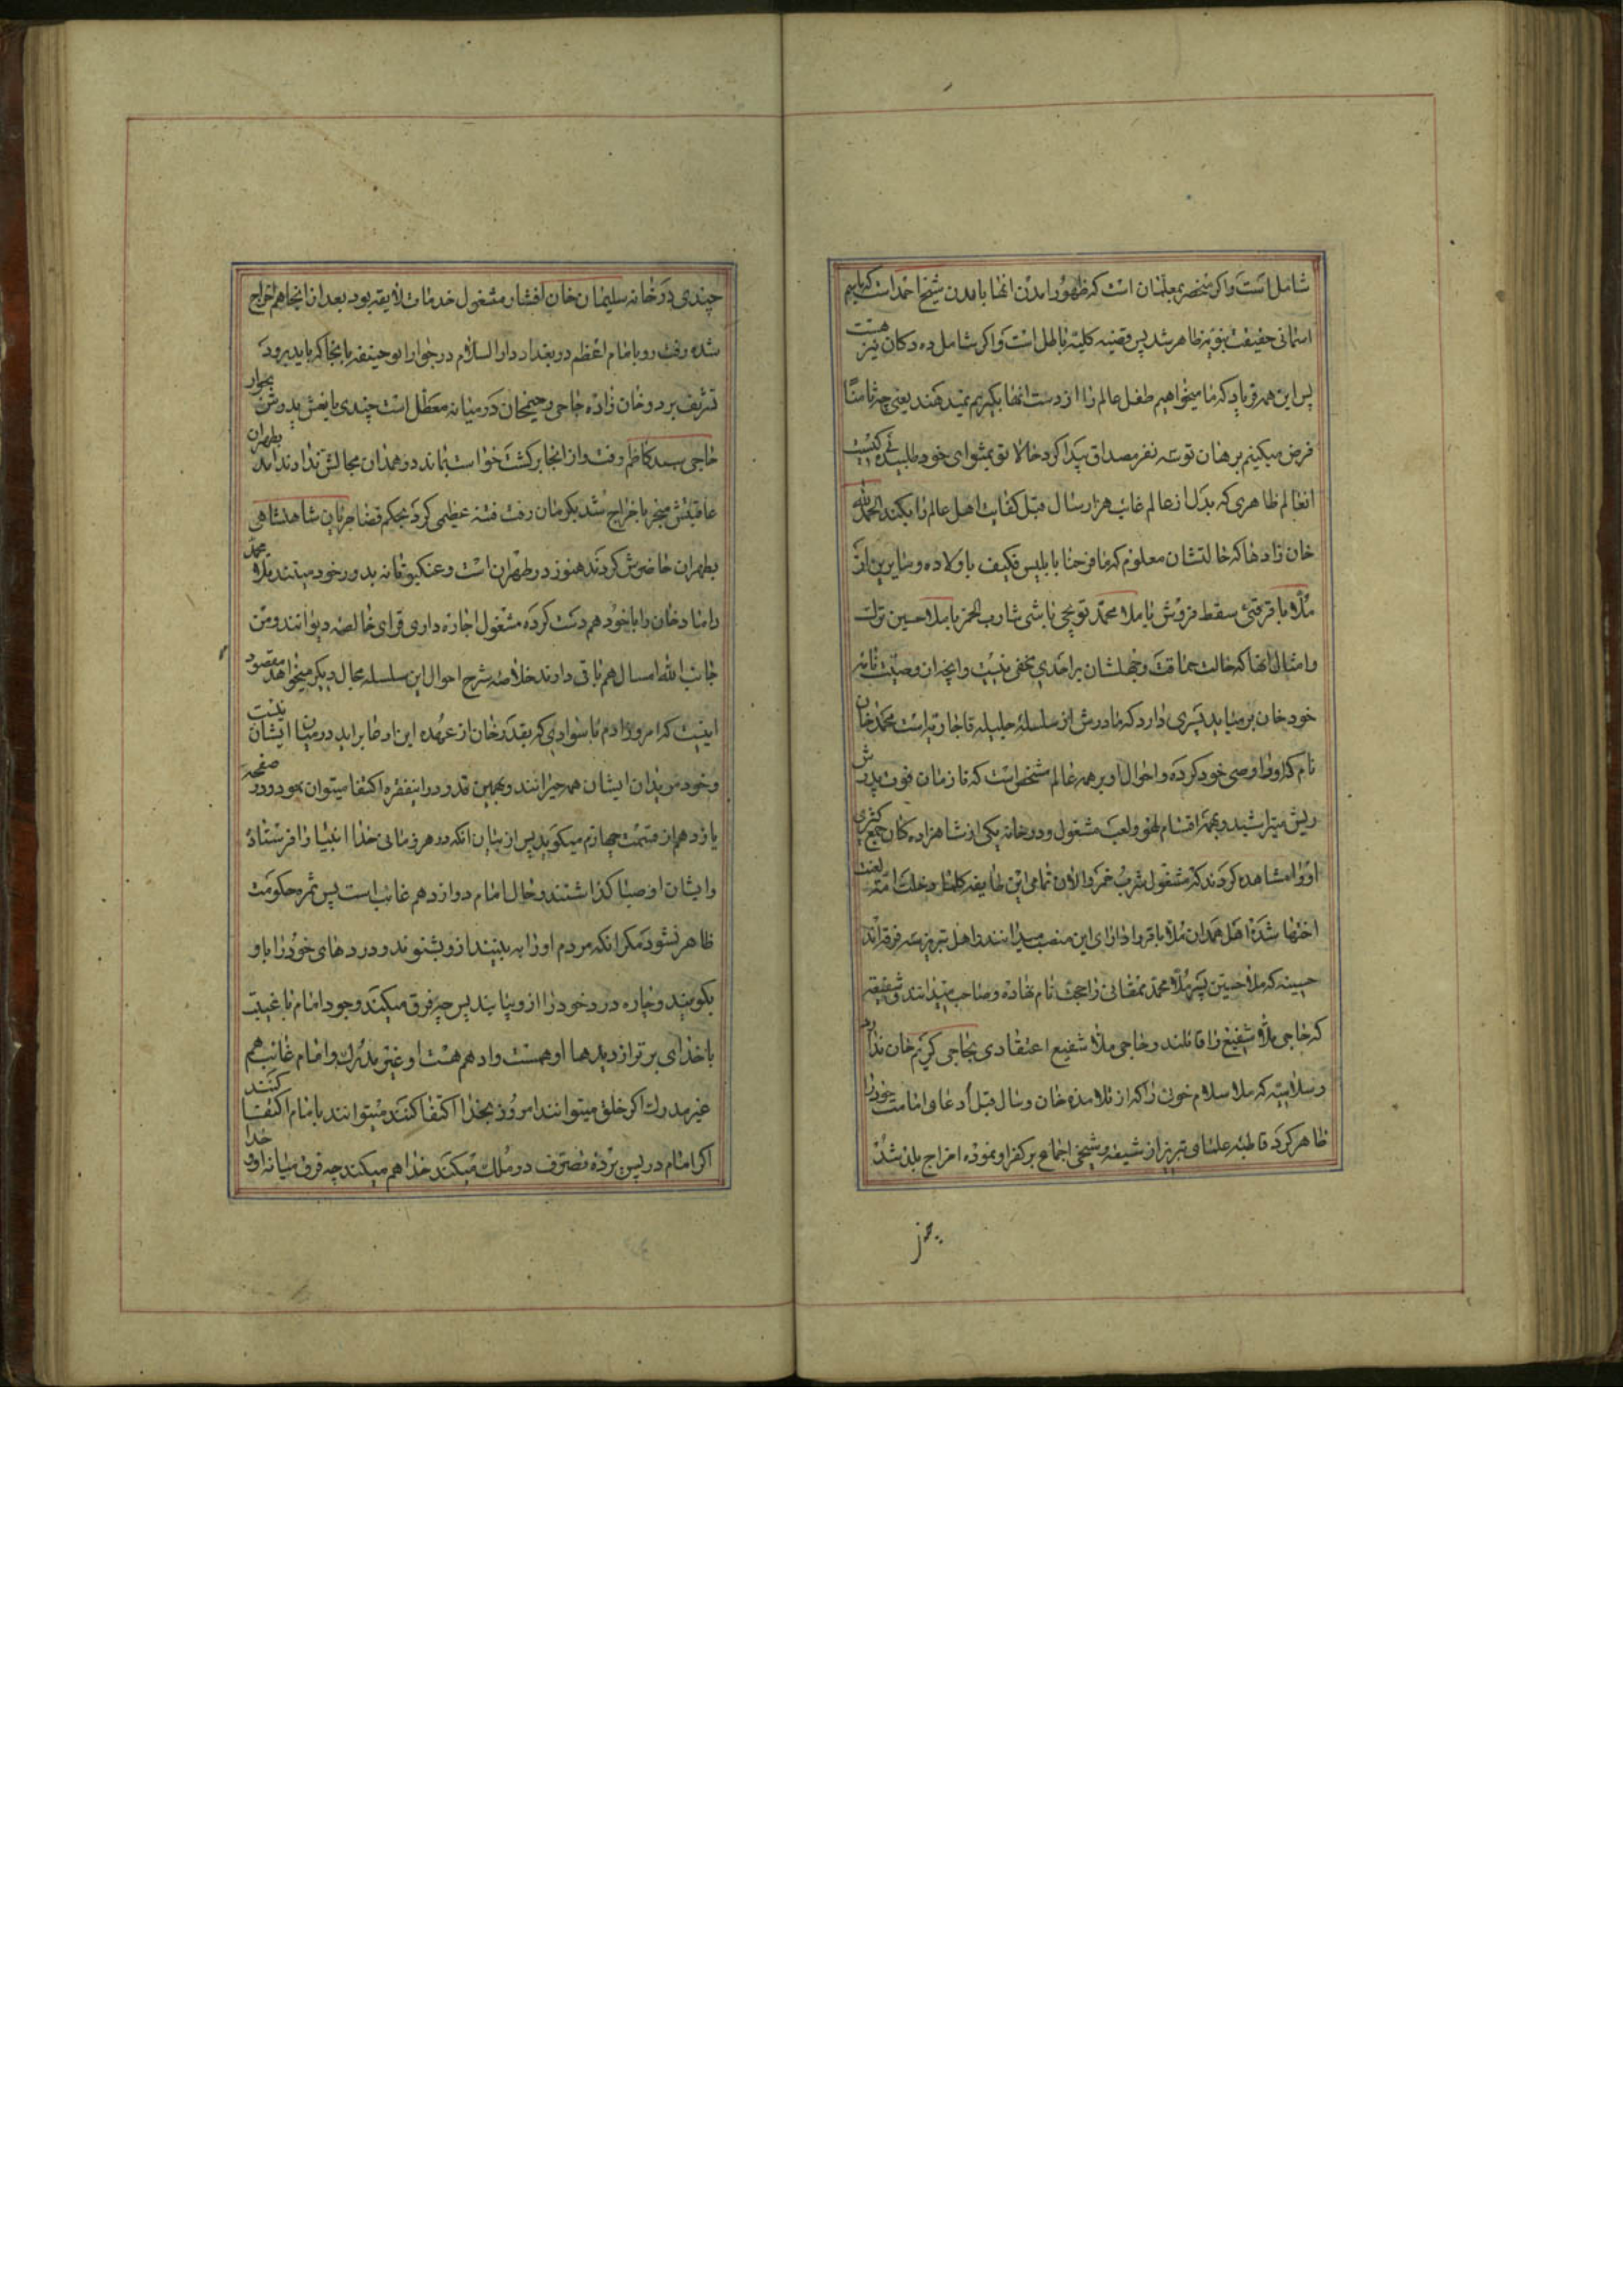 شامل است و اکر منحصر بمعلمان است که ظهور امدن انها بامدن شیخ احمد است که باسم
اسمانی حقیقت نبویه ظاهر شد پس قضیه کلیه باطل است و اکر شامل ده دکان نیز هست
پس این همه فریاد که ما میخواهیم طفل عالم را از دست انها بکیریم نمیدهند یعنی چه ثامنا
فرض میکنیم برهان تو سه نفر مصداق پیدا کرد حالا تو پیشوای خود طلبیده کیست
انعالم ظاهری که بدل از عالم غائب هزار سال قبل کفایت اهل عالم را بکند الحمد لله
خان زادها که حالتشان معلوم که ما فرحنا بابلیس فکیف باولاده و سایرین از
ملا باقر سقط فروش یا ملا محمد توپچی باشی شارب الخمر یا ملا حسین ترک
و امثال انها که حالت حماقت و جهلشان بر احدی مخفی نیست و انچه از وصیت نامه
خود خان بر میاید پسری دارد که مادرش از سلسله جلیله قاجاریه است محمد خان
نام که او را وصی خود کرده و احوال او بر همه عالم مشخص است که تا زمان فوت پدرش
ریش میتراشید و بهمه اقسام لهو و لعب مشغول و در خانه یکی از شاهزاده کان جمع کثیری
او را مشاهده کردند که مشغول شرب خمر و الان تمامی این طایفه کلما دخلت امة لعنت
اختها شده اهل همدان ملا باقر را دارای این منصب میدانند و اهل تبریز سه فرقه اند
حسینیه که ملا حسین پسر ملا محمد ممقانی را حجت نام نهاده و صاحب میدانند و شفیعیه
که حاجی ملا شفیع را قائلند و حاجی ملا شفیع اعتقادی بحاجی کریم خان ندارد
و سلامیه که ملا سلام خوئی را که از تلامذه خان و سال قبل ادعای امامت خود را
ظاهر کرد قاطبه علمای تبریز از شیعه و شیخی اجماع بر کفر او نموده اخراج بلد شد
چندی در خانه سلیمان خان افشار مشغول خدمات لایقه بود بعد از انجا هم اخراج
شده رفت رو بامام اعظم در بغداد دار السلام در جوار ابو حنیفه بانجا که باید برود
تشریف برد و خان زاده حاجی رحیمخان در میانه معطل است چندی با نعش پدرش بجوار
حاجی سید کاظم رفت و از انجا برکشت خواست بماند در همدان مجالش ندادند امد بطهران
عاقبتش منجر باخراج شد بکرمان رفت فتنه عظیمی کرد بحکم قضا جریان شاهنشاهی
بطهران حاضرش کردند هنوز در طهران است و عنکبوتانه بدور خود میتند ملا محمد
رامناد خان را با خود همدست کرده مشغول اجاره داری قرای خالصه دیوانند و من
جانب الله امسال هم باقی دارند خلاصه شرح احوال این سلسله مجال دیکر میخواهد مقصود
اینست که امروز ادم با سوادی که بقدر خان از عهده این ارضا براید در میان ایشان نیست
و خود مریدان ایشان همه حیرانند و بهمین قدر در اینفقره اکتفا میتوان نمود و در صفحه
یازدهم از قسمت چهارم میکوید پس از بیان انکه در هر زمانی خدا انبیا را فرستاده
و ایشان اوصیا کذاشتند و حال امام دوازدهم غائب است پس ثمره حکومت
ظاهر نشود مکر انکه مردم او را به بینند از و بشنوند و دردهای خود را باو
بکویند و چاره درد خود را از و بیابند پس چه فرق میکند وجود امام با غیبت
با خدای برتر از دیدها او هست و او هم هست او غیر مدرک و امام غائب هم
غیر مدرک اکر خلق میتوانند امروز بخدا اکتفا کنند میتوانند بامام اکتفا کنند
اکر امام در پس پرده تصرف در ملک میکند خدا هم میکند چه فرق میانه او و خدا